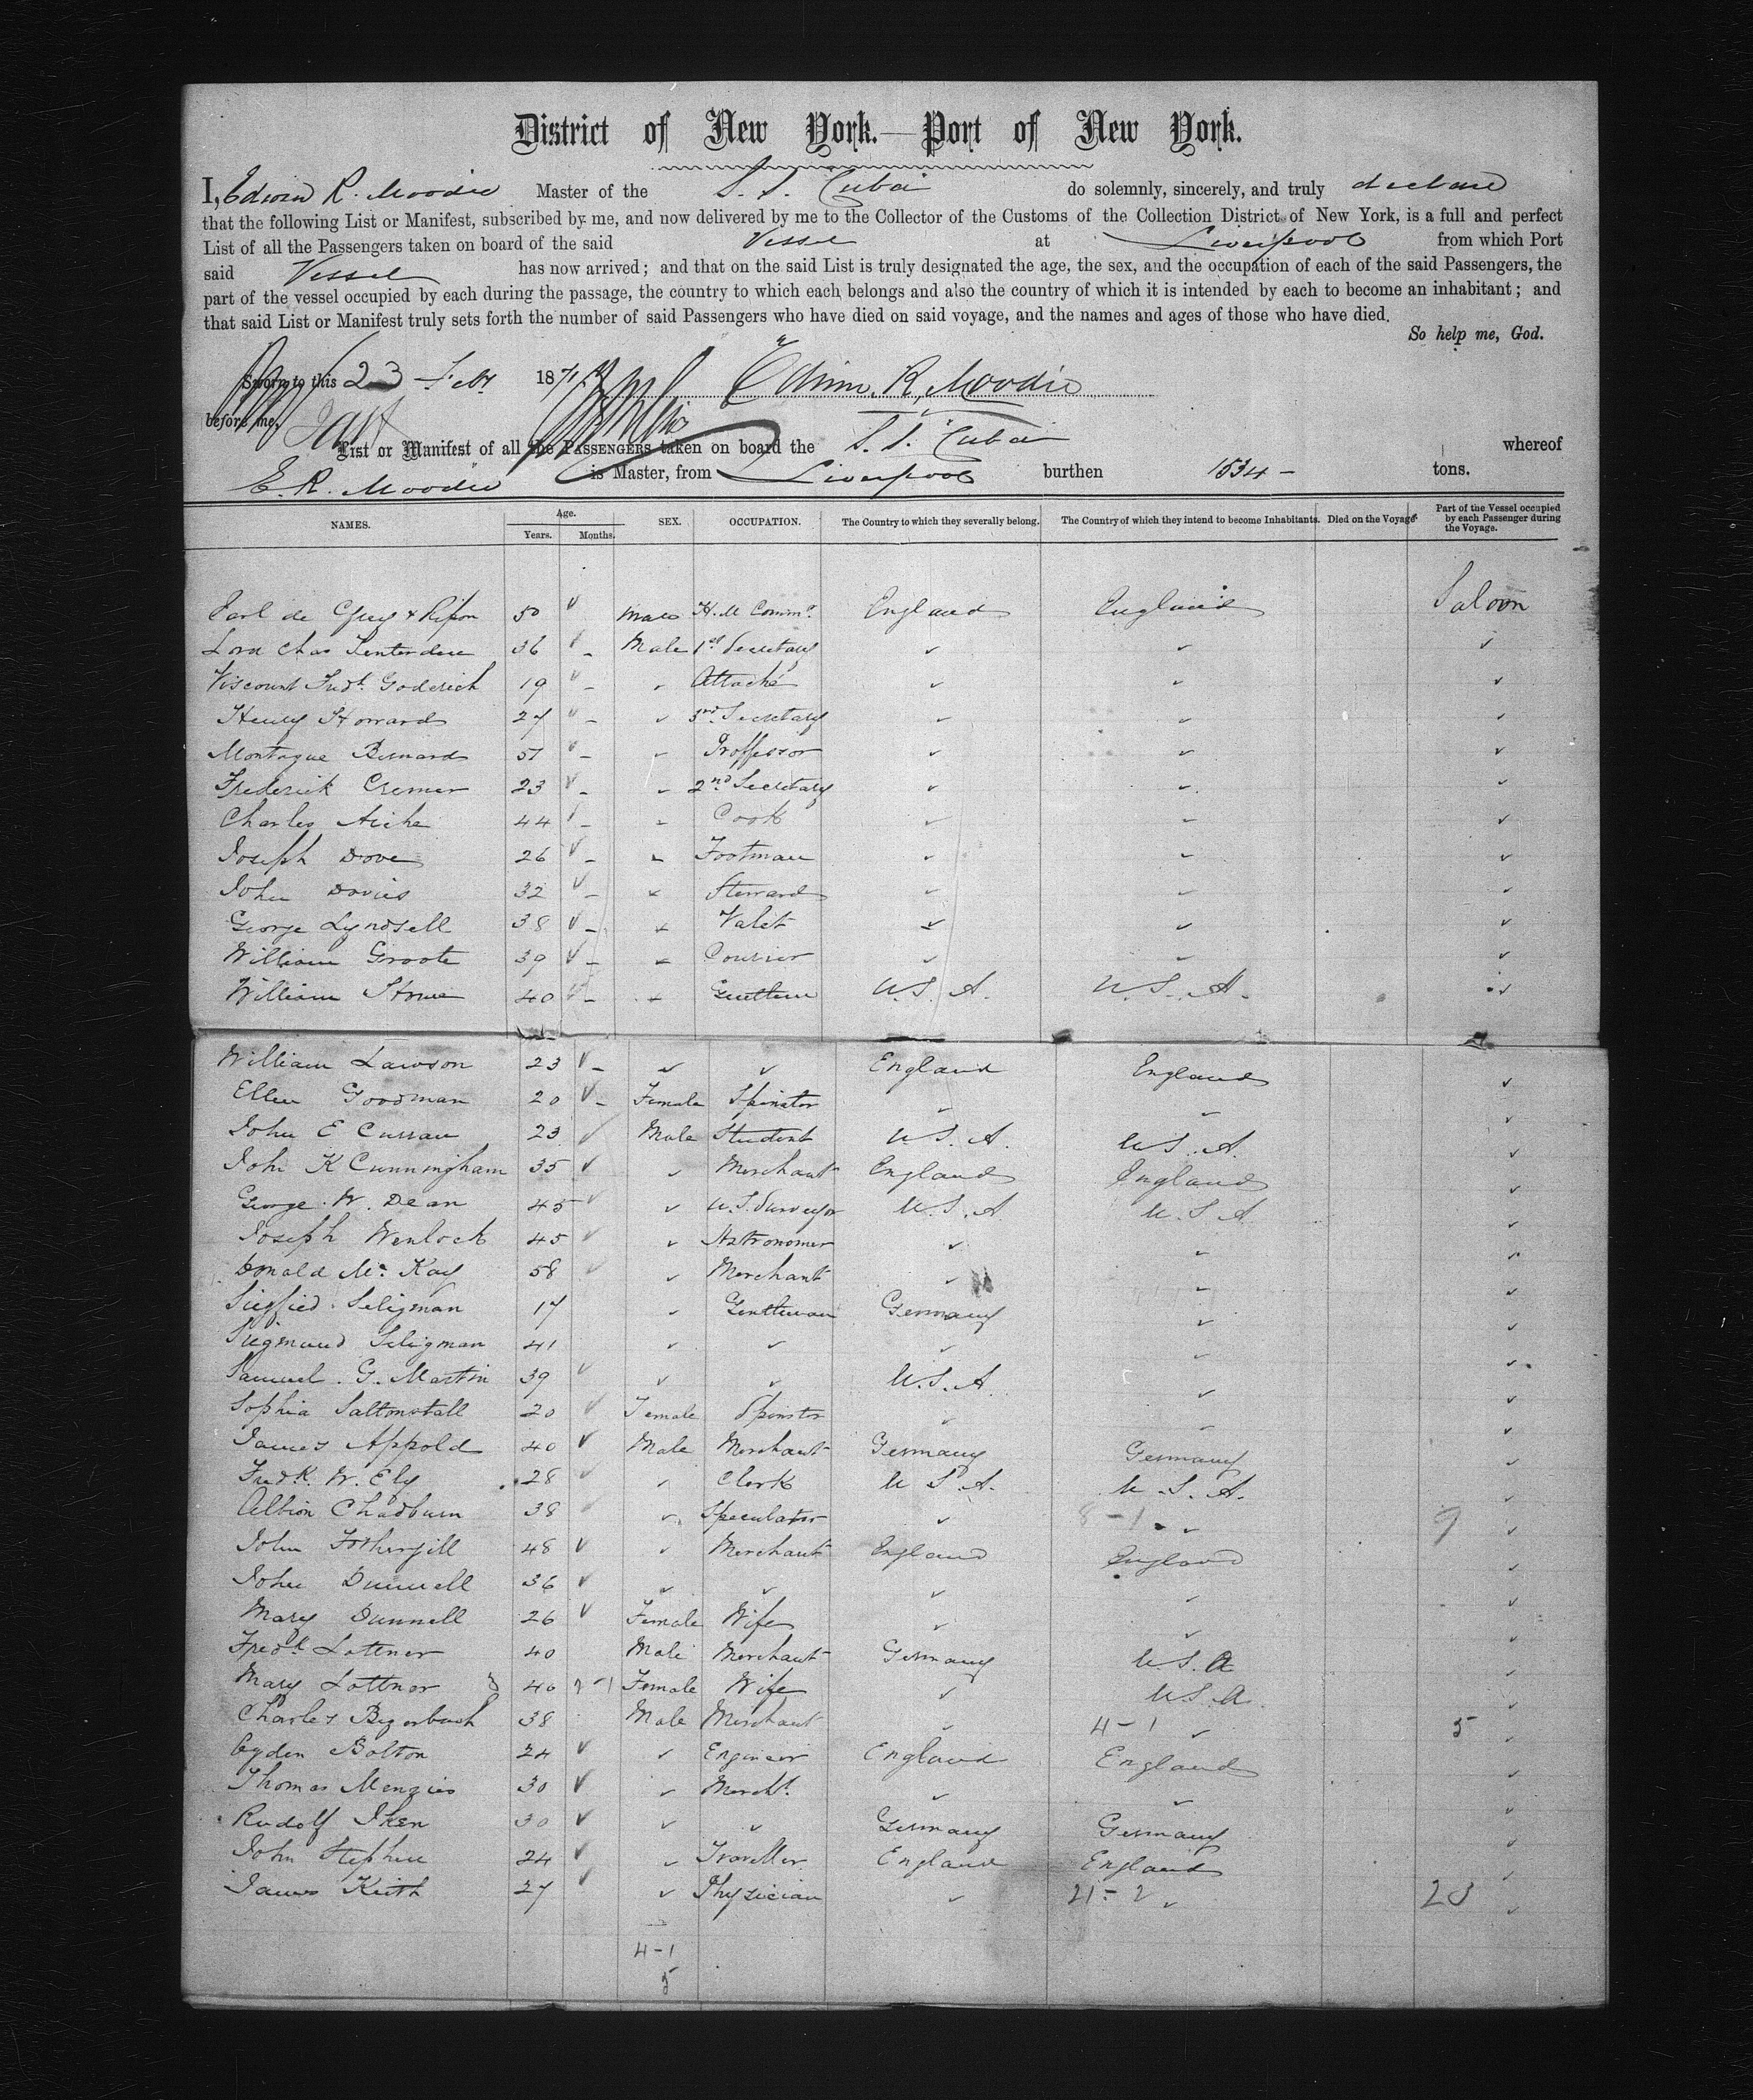 District of New York.—Port of New York.
I, Edwin R. Moodie Master of the S. S. Cuba do solemnly, sincerely, and truly declare
that the following List or Manifest, subscribed by me, and now delivered by me to the Collector of the Customs of the Collection District of New York, is a full and perfect
List of all the Passengers taken on board of the said Vessel at Liverpool from which Port
said Vessel has now arrived; and that on the said List is truly designated the age, the sex, and the occupation of each of the said Passengers, the
part of the vessel occupied by each during the passage, the country to which each belongs and also the country of which it is intended by each to become an inhabitant; and
that said List or Manifest truly sets forth the number of said Passengers who have died on said voyage, and the names and ages of those who have died.
So help me, God.
Sworn to this 23 Feby 1871 Edwin. R. Moodie
before me,
List or Manifest of all the PASSENGERS taken on board the S. S. Cuba whereof
E. R. Moodie is Master, from Liverpool burthen 1534 - tons.
NAMES. Age. Years. Months. SEX. OCCUPATION. The Country to which they severally belong. The Country of which they intend to become Inhabitants. Died on the Voyage. Part of the Vessel occupied by each Passenger during the Voyage.
Earl de Grey & Ripon 50 ✓ Male H. M Commr. England England Saloon
Lord Chas Tenterden 36 ✓ - Male 1st Secretary ✓ ✓ ✓
Viscount Fredk. Goderich 19 ✓ - ✓ Attaché ✓ ✓ ✓
Henry Howard 27 ✓ - ✓ 3rd. Secretary ✓ ✓ ✓
Montague Bernard 51 ✓ - ✓ Proffessor ✓ ✓ ✓
Frederick Cremer 23 ✓ - ✓ 2nd Secretary ✓ ✓ ✓
Charles Aiche 44 ✓ - ✓ Cook ✓ ✓ ✓
Joseph Dove 26 ✓ - ✓ Footman ✓ ✓ ✓
John Davies 32 ✓ - ✓ Steward ✓ ✓ ✓
George Lyndsell 38 ✓ - ✓ Valet ✓ ✓ ✓
William Groote 39 ✓ - ✓ Courier ✓ ✓ ✓
William Stowe 40 ✓ - ✓ Gentlem U.S. A. U. S. A. ✓
William Lawson 23 ✓ - ✓ ✓ England England ✓
Ellen Goodman 20 ✓ - Female Spinster ✓ ✓ ✓
John E Curran 23 ✓ Male Student U S. A. U S. A. ✓
John K Cunningham 35 ✓ ✓ Merchant England England ✓
George. W. Dean 45 ✓ ✓ U.S. Surveyor U. S. A. U. S. A ✓
Joseph Wenlock 45 ✓ ✓ Astronomer ✓ ✓ ✓
Donald Mc. Kay 58 ✓ ✓ Merchant ✓ ✓ ✓
Siegfied. Seligman 17 ✓ Gentleman Germany ✓ ✓
Siegmund Seligman 41 ✓ ✓ ✓ ✓ ✓
Samuel. G. Martin 39 ✓ ✓ ✓ U. S. A. ✓ ✓
Sophia Saltonstall 20 ✓ Female Spinster ✓ ✓ ✓
James Appold 40 ✓ Male Merchant Germany Germany ✓
Fredk. W. Ely 28 ✓ ✓ Clerk U S. A. U. S. A. ✓
Albion Chadburn 38 ✓ ✓ Speculator ✓ 8 - 1 ✓ 9 ✓
John Fothergill 48 ✓ ✓ Merchant England England ✓
John Dunnell 36 ✓ ✓ ✓ ✓ ✓ ✓
Mary Dunnell 26 ✓ Female Wife ✓ ✓ ✓
Fredk Lottner 40 Male Merchant Germany U. S. A ✓
Mary Lottner 40 Female Wife ✓ U. S. A. ✓
Charles 38 Male Merchant ✓ 4 - 1 ✓ 5 ✓
Ogden Bolton 24 ✓ ✓ Engineer England England ✓
Thomas Menzies 30 ✓ ✓ Mercht. ✓ ✓ ✓
Rudolf Iken 30 ✓ ✓ ✓ Germany Germany ✓
John Stephen 24 ✓ ✓ Traveller England England ✓
James Keith 27 ✓ ✓ Physician ✓ 21 - 2 ✓ 23 ✓
4 - 1
5